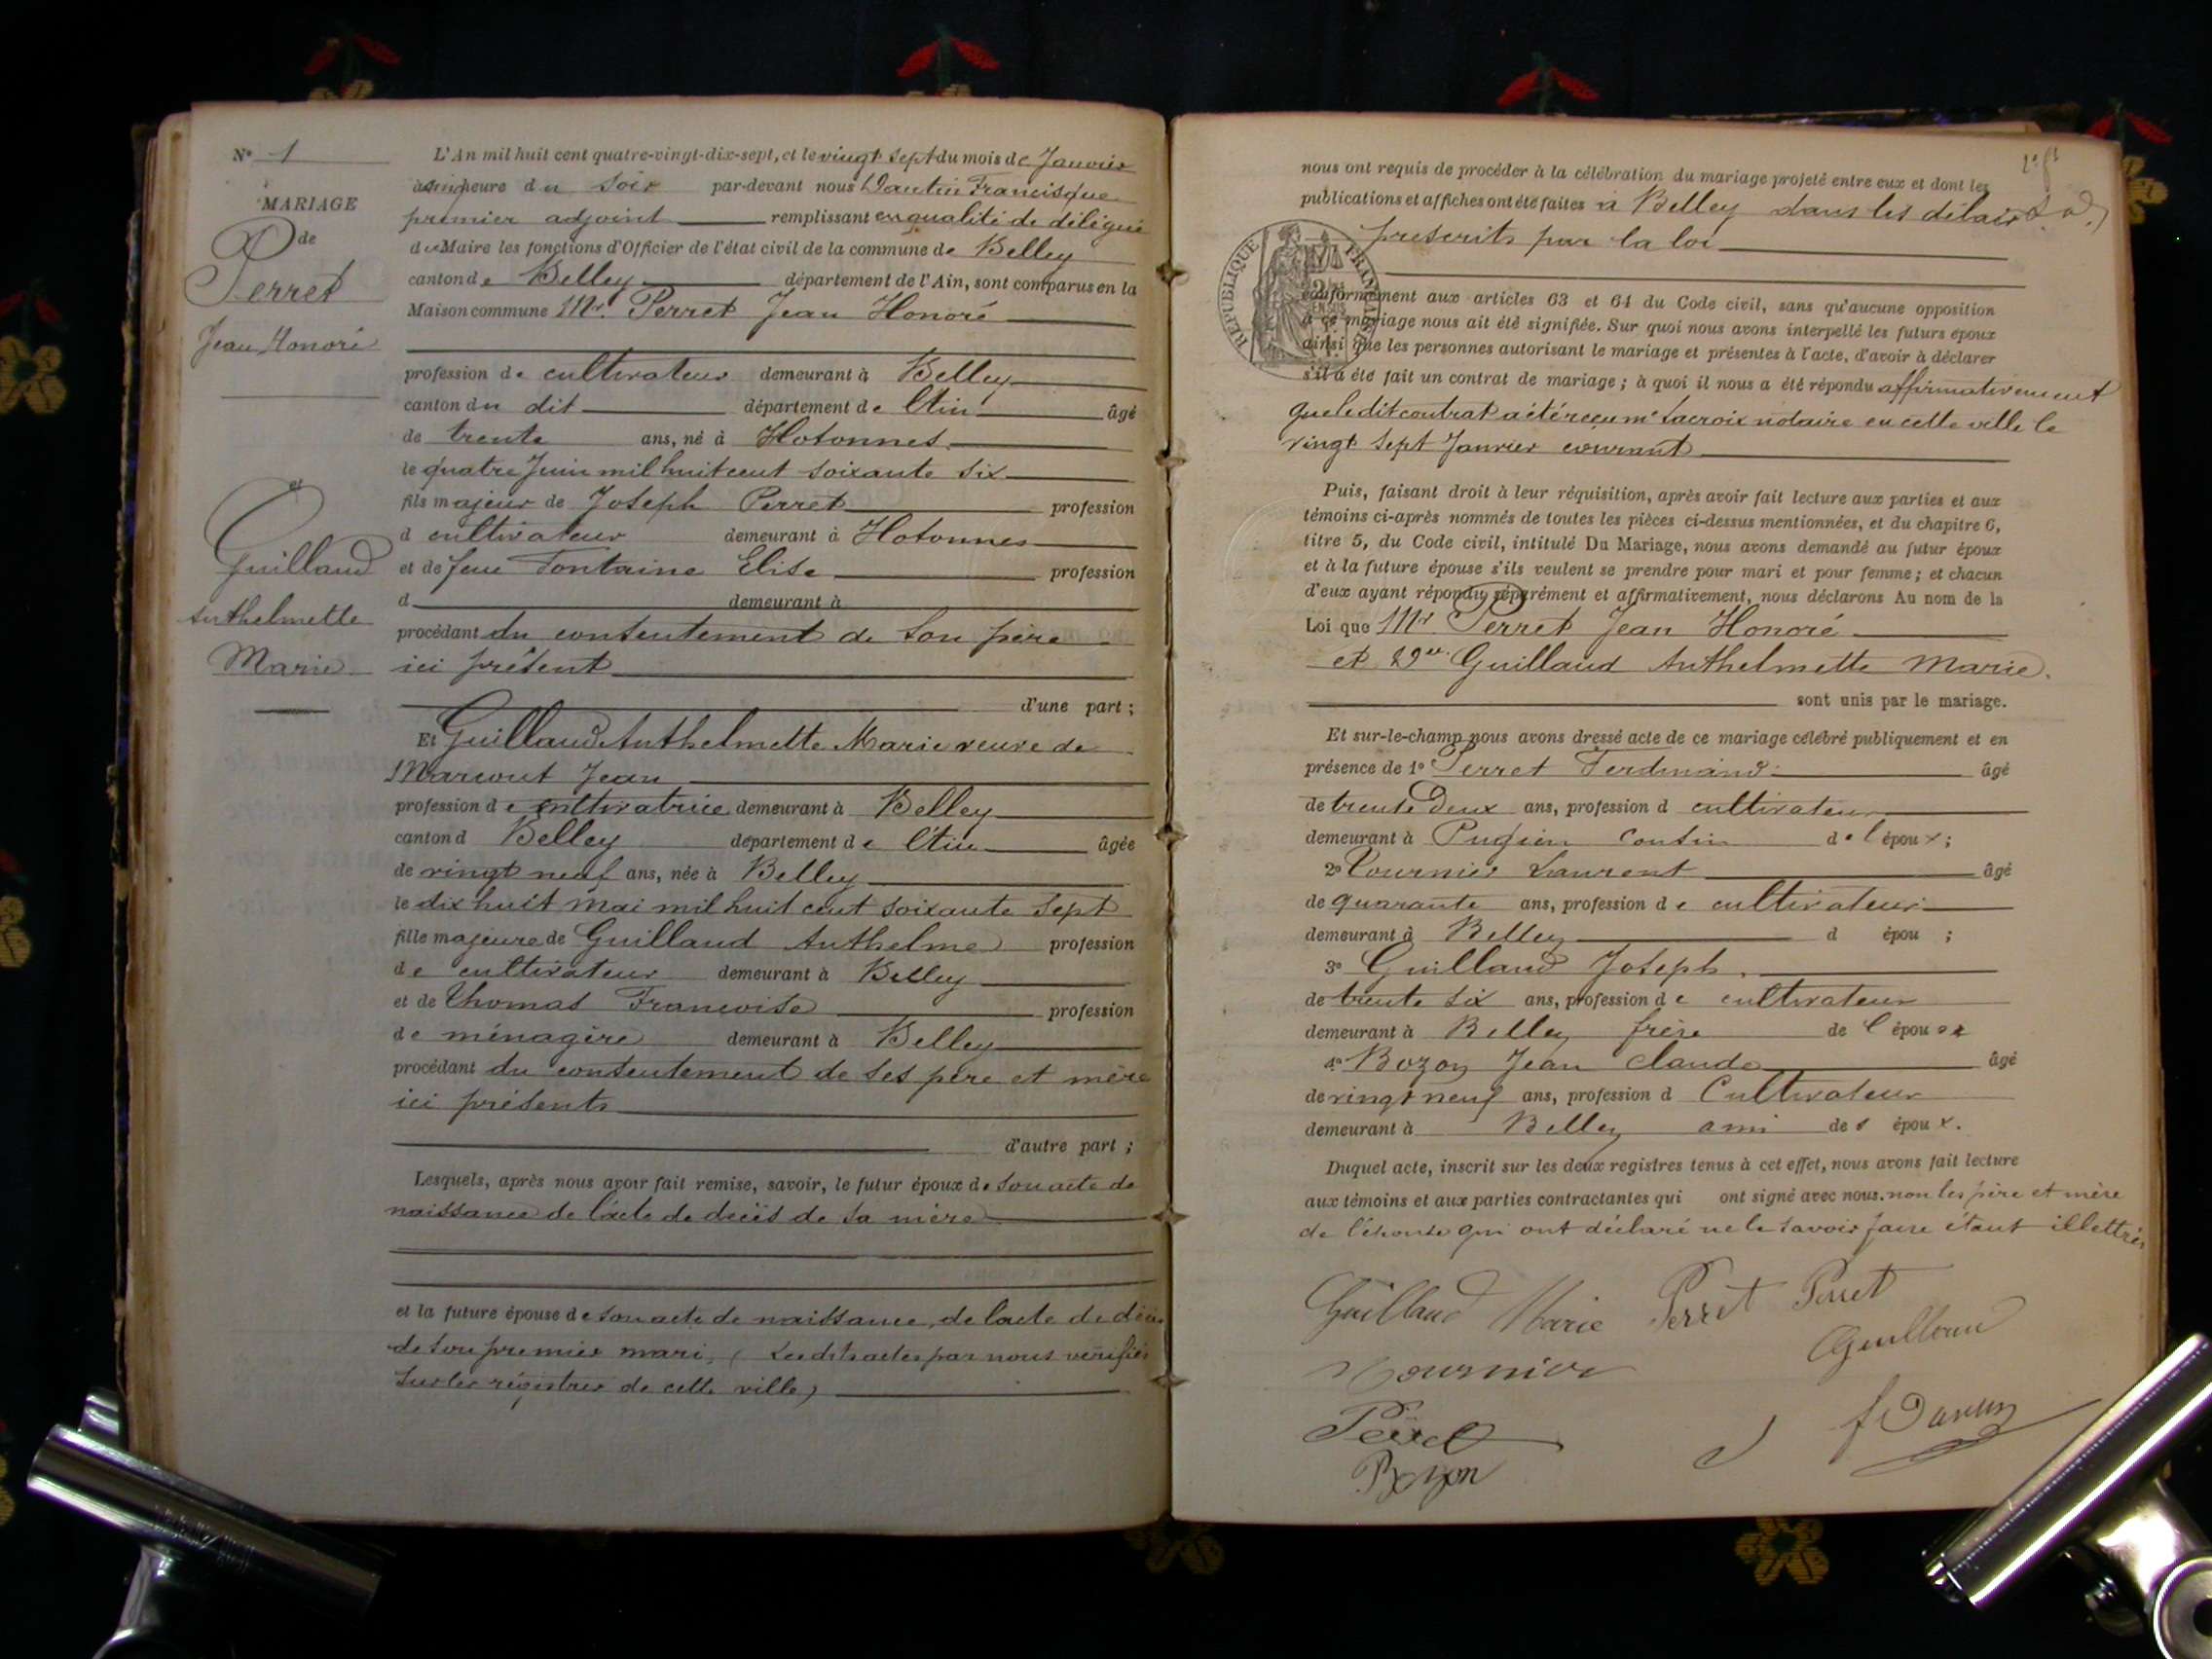 N° 1
MARIAGE
de
Perret
Jean Honoré
et
Guillaud
Anthelmette
Marie
L'An mil huit cent quatre-vingt-dix-sept, et le vingt sept du mois de Janvier
heure du soir par-devant nous Dantin Francisque
premier adjoint remplissant en qualité de délégué
du Maire les fonctions d'Officier de l'état civil de la commune de Belley
canton de Belley département de l'Ain, sont comparus en la
Maison commune Mr. Perret Jean Honoré
profession de cultivateur demeurant à Belley
canton du dit département de l'Ain âgé
de trente ans, né à Hotonnes
le quatre Juin mil huit cent soixante six
fils majeur de Joseph Perret profession
d cultivateur demeurant à Hotonnes
et de feue Fontaine Elise profession
d demeurant à
procédant du consentement de son père
ici présent
d'une part ;
Et Guillaud Anthelmette Marie veuve de
Jean
profession de cultivatrice demeurant à Belley
canton d Belley département de l'Ain âgée
de vingt neuf ans, née à Belley
le dix huit mai mil huit cent soixante sept
fille majeure de Guillaud Anthelme profession
de cultivateur demeurant à Belley
et de Thomas Francoise profession
de ménagère demeurant à Belley
procédant du consentement de ses père et mère
ici présents
d'autre part ;
Lesquels, après nous avoir fait remise, savoir, le futur époux de son acte de
naissance de l'acte de décès de sa mère
et la future épouse de son acte de naissance, de l'acte de décès
de son premier mari, (Les dits actes par nous vérifiés
sur les régistres de cette ville)
nous ont requis de procéder à la célébration du mariage projeté entre eux et dont les
publications et affiches ont été faites à Belley dans les délais
prescrits par la loi
RÉPUBLIQUE FRANÇAISE
conformément aux articles 63 et 64 du Code civil, sans qu'aucune opposition
à ce mariage nous ait été signifiée. Sur quoi nous avons interpellé les futurs époux
ainsi que les personnes autorisant le mariage et présentes à l'acte, d'avoir à déclarer
s'il a été fait un contrat de mariage ; à quoi il nous a été répondu affirmativement
que le dit contrat a été reçu me Lacroix notaire en cette ville le
vingt sept Janvier courant
Puis, faisant droit à leur réquisition, après avoir fait lecture aux parties et aux
témoins ci-après nommés de toutes les pièces ci-dessus mentionnées, et du chapitre 6,
titre 5, du Code civil, intitulé Du Mariage, nous avons demandé au futur époux
et à la future épouse s'ils veulent se prendre pour mari et pour femme ; et chacun
d'eux ayant répondu séparément et affirmativement, nous déclarons Au nom de la
Loi que Mr Perret Jean Honoré
et Guillaud Anthelmette Marie.
sont unis par le mariage.
Et sur-le-champ nous avons dressé acte de ce mariage célébré publiquement et en
présence de 1° Perret Ferdinand âgé
de trente deux ans, profession d cultivateur
demeurant à Pugieu cousin de l'époux ;
2° Tournier Laurent âgé
de quarante ans, profession de cultivateur
demeurant à Belley d épou ;
3° Guillaud Joseph.
de trente six ans, profession de cultivateur
demeurant à Belley frère de l'épouse
4° Bozon Jean Claude âgé
de vingt neuf ans, profession d Cultivateur
demeurant à Belley ami des époux.
Duquel acte, inscrit sur les deux registres tenus à cet effet, nous avons fait lecture
aux témoins et aux parties contractantes qui ont signé avec nous. non les père et mère
de l'épouse qui ont déclaré ne le savoir faire étant illettrés
Guillaud Marie Perret Perret
Guillaud
Tournier
Perret
Bozon